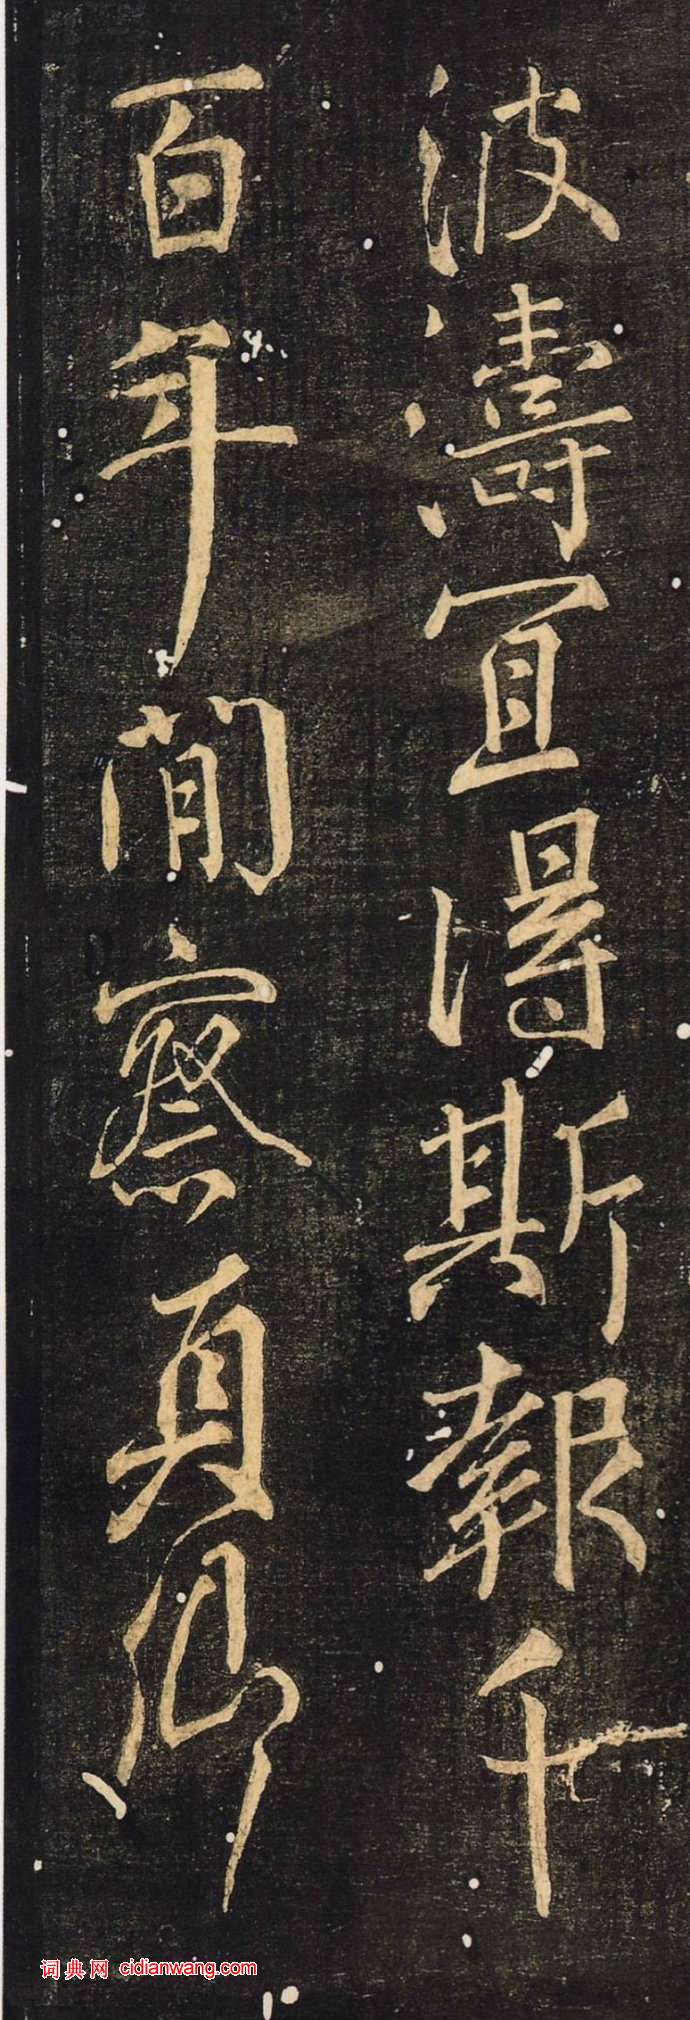 波濤宜得斯報千
百年間察真卿
词典网 cidianwang.com